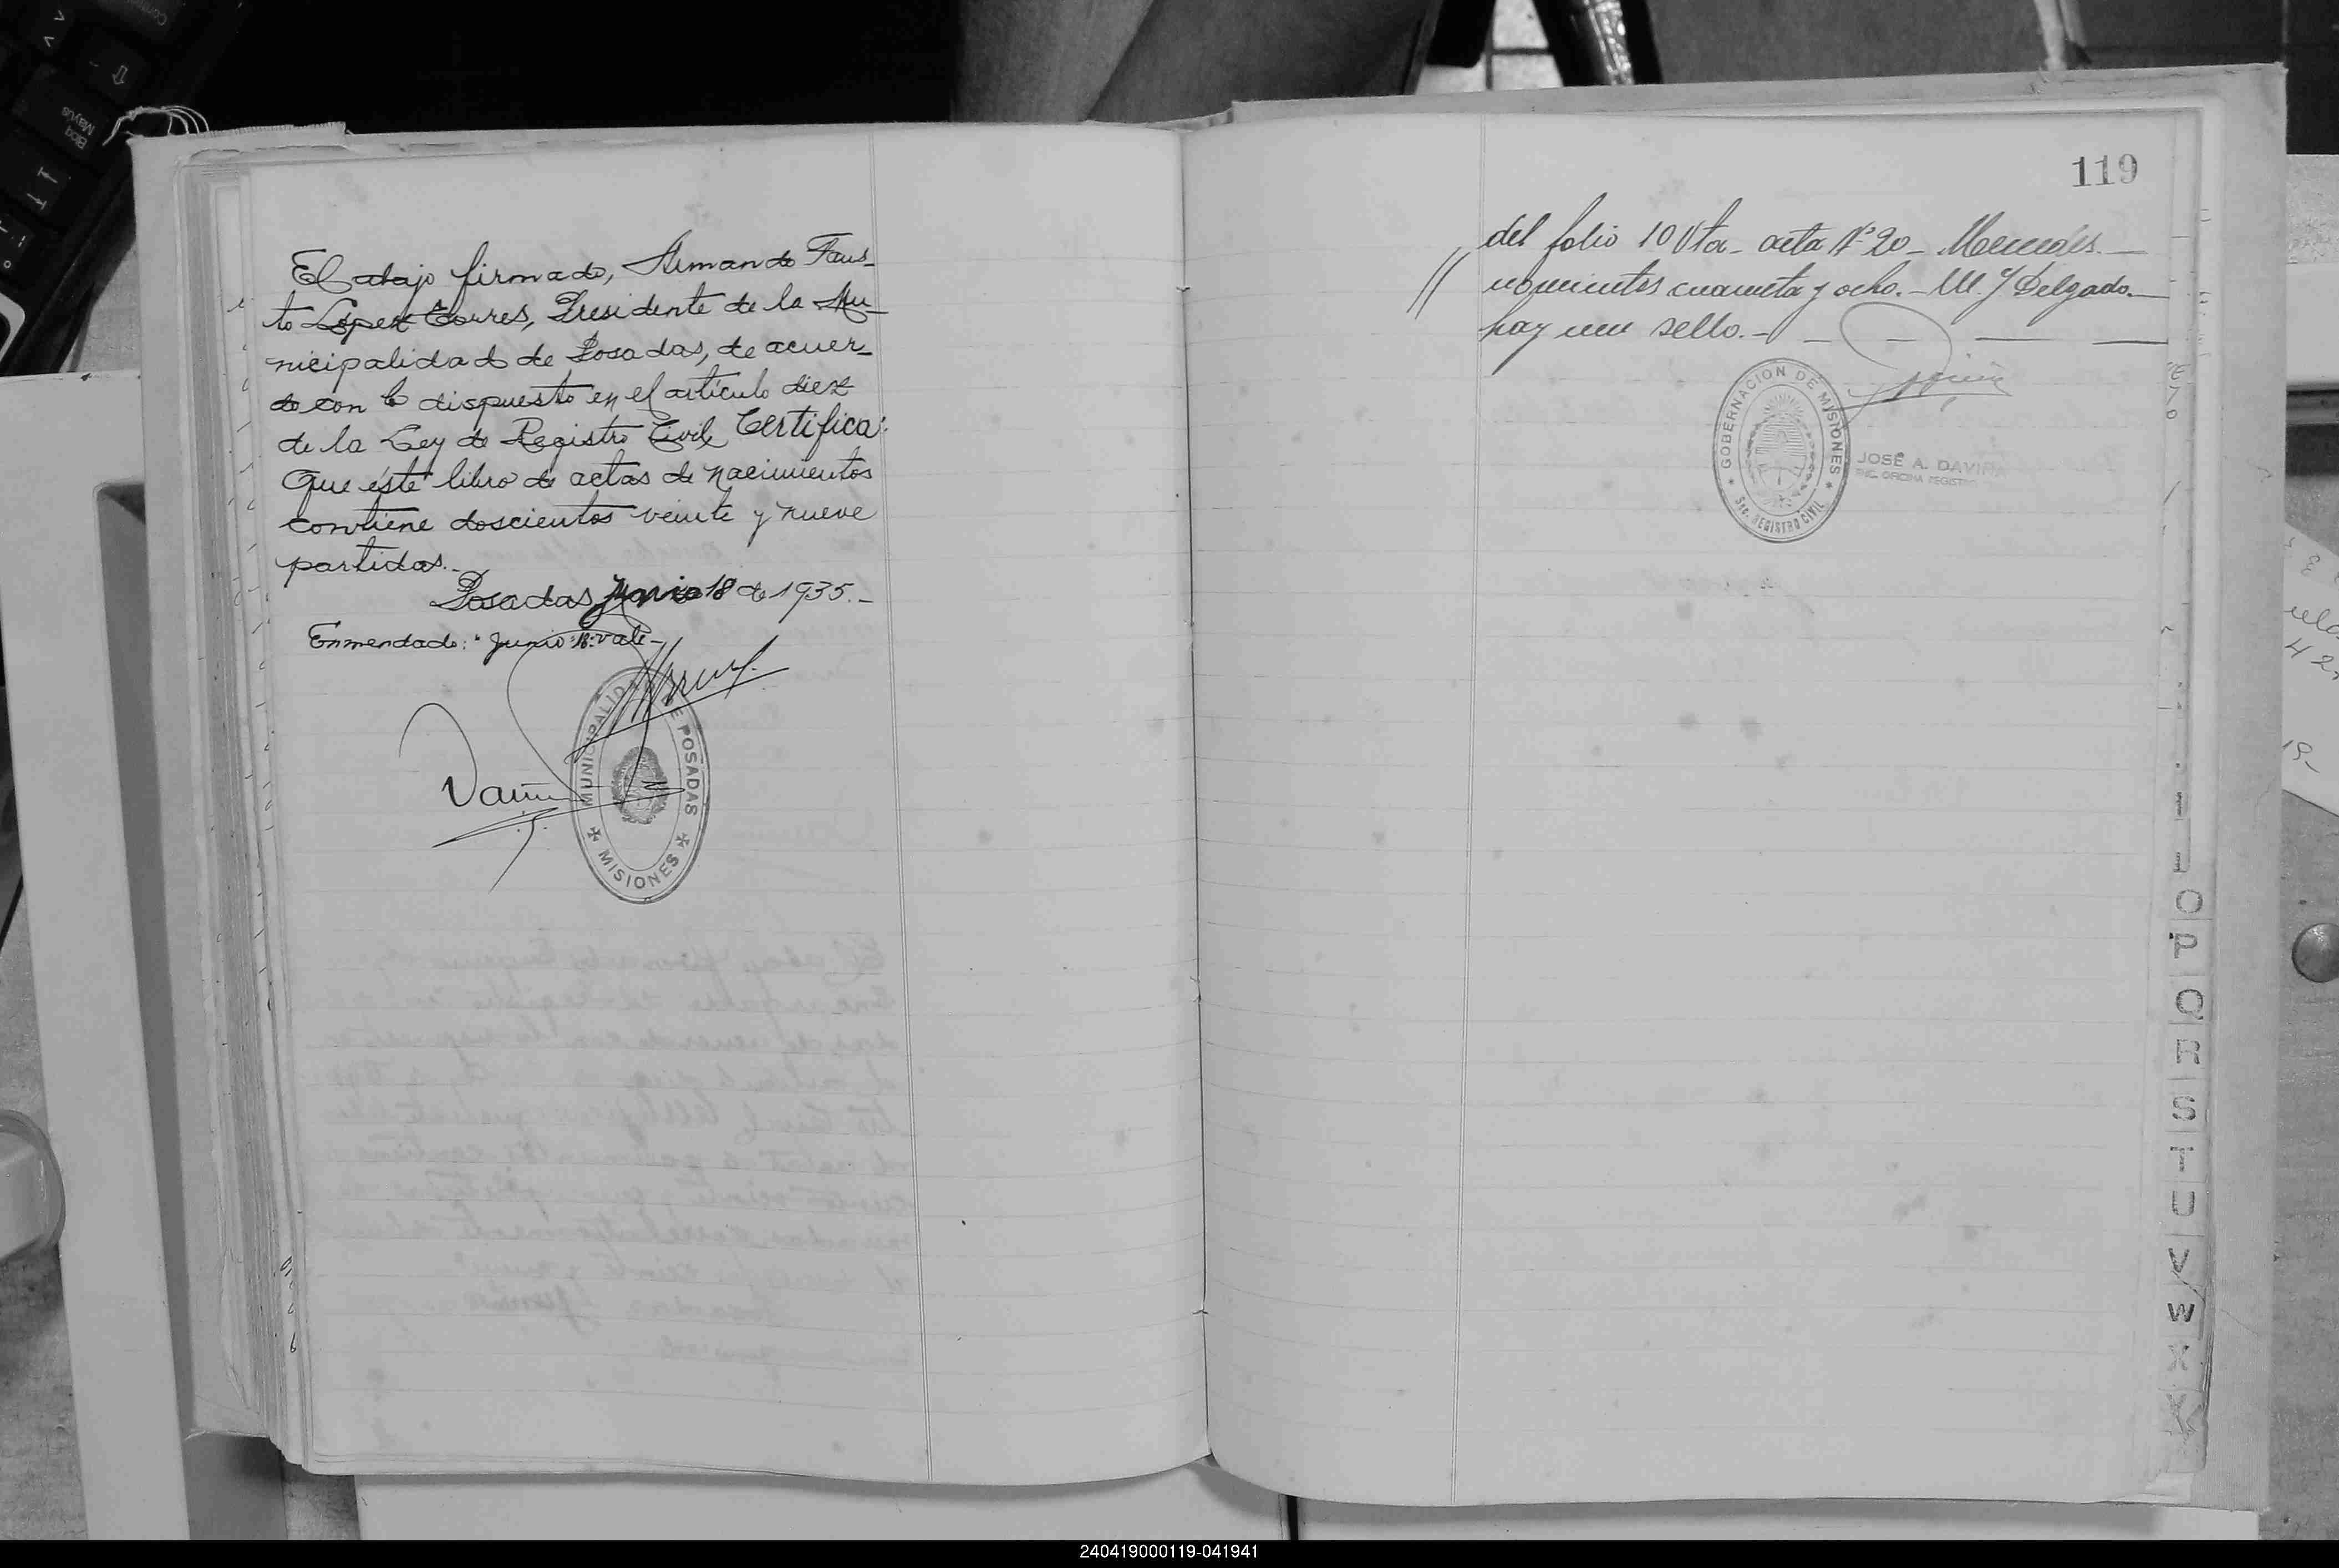 El abajo firmado, Armando Faus-
to López Torres, Presidente de la Mu-
nicipalidad de Posadas, de acuer-
do con lo dispuesto en el artículo diez
de la Ley de Registro Civil Certifica:
Que éste libro de actas de nacimientos
contiene doscientos veinte y nueve
partidas.-
Posadas, Junio 18 de 1935.-
Enmendado: "Junio 18": vale-
MUNICIPALIDAD DE POSADAS
MISIONES
119
del folio 10 Vta- acta Nº 20-
// novecientos cuarenta y ocho.- M. J Delgado.-
hay un sello.-
GOBERNACION DE MISIONES
Sec. REGISTRO CIVIL
JOSÉ A. DAVIÑA
ENC. OFICINA REGISTRO
O
P
Q
R
S
T
U
V
W
X
240419000119-041941